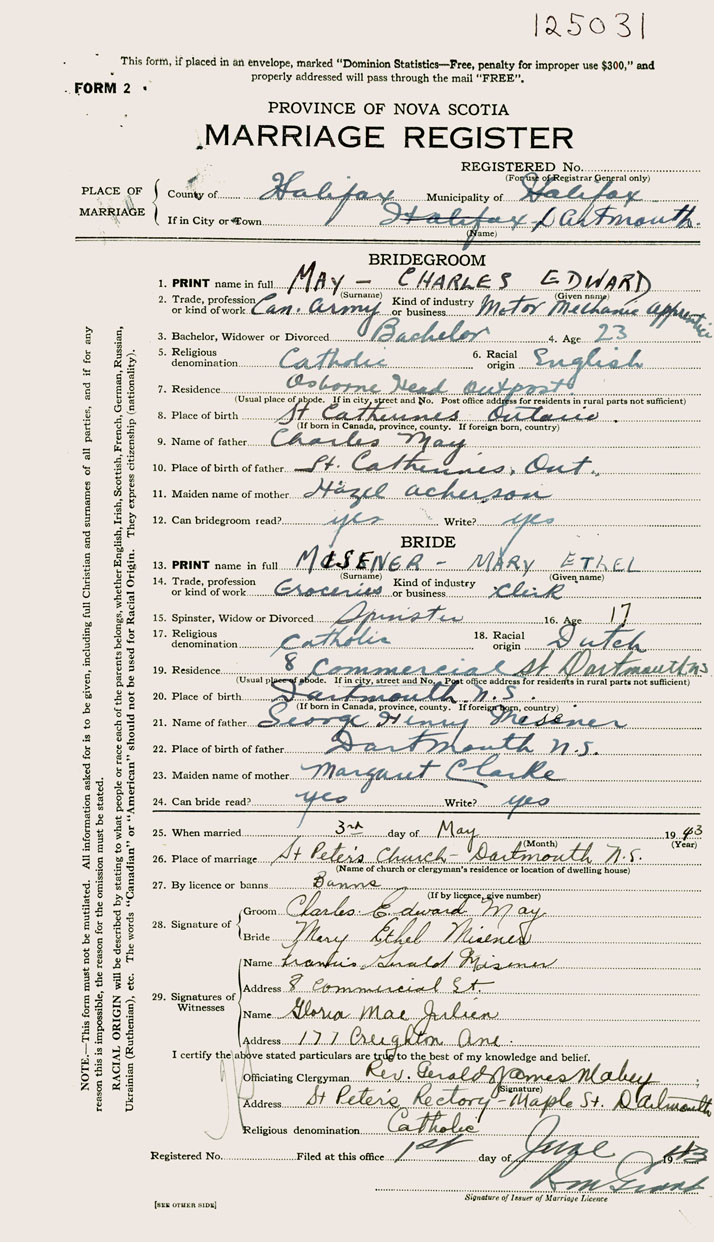 125031
This form, if placed in an envelope, marked "Dominion Statistics—Free, penalty for improper use $300," and
properly addressed will pass through the mail "FREE".
FORM 2
PROVINCE OF NOVA SCOTIA
MARRIAGE REGISTER
REGISTERED No.
(For use of Registrar General only)
PLACE OF MARRIAGE
County of Halifax Municipality of Halifax
If in City or Town Halifax Dartmouth.
(Name)
BRIDEGROOM
1. PRINT name in full MAY - CHARLES EDWARD
(Surname) (Given name)
2. Trade, profession or kind of work Can. Army Kind of industry or business Motor Mechanic apprentice
3. Bachelor, Widower or Divorced Bachelor 4. Age 23
5. Religious denomination Catholic 6. Racial origin English
7. Residence Osborne Head Outpost
(Usual place of abode. If in city, street and No. Post office address for residents in rural parts not sufficient)
8. Place of birth St Catherines Ontario.
(If born in Canada, province, county. If foreign born, country)
9. Name of father Charles May
10. Place of birth of father St. Catherines, Ont.
11. Maiden name of mother Hazel Acherson
12. Can bridegroom read? yes Write? yes
BRIDE
13. PRINT name in full MISENER - MARY ETHEL
(Surname) (Given name)
14. Trade, profession or kind of work Groceries Kind of industry or business Clerk
15. Spinster, Widow or Divorced Spinster 16. Age 17
17. Religious denomination Catholic 18. Racial origin Dutch
19. Residence 8 Commercial St Dartmouth N.S.
(Usual place of abode. If in city, street and No. Post office address for residents in rural parts not sufficient)
20. Place of birth Dartmouth N.S.
(If born in Canada, province, county. If foreign born, country)
21. Name of father George Henry Misener
22. Place of birth of father Dartmouth N.S.
23. Maiden name of mother Margaret Clarke
24. Can bride read? yes Write? yes
25. When married 3rd day of May 1943
(Month) (Year)
26. Place of marriage St Peter's Church - Dartmouth N.S.
(Name of church or clergyman's residence or location of dwelling house)
27. By licence or banns Banns
(If by licence, give number)
28. Signature of
Groom Charles Edward May
Bride Mary Ethel Misener
29. Signatures of Witnesses
Name Francis Gerald Misener
Address 8 Commercial St.
Name Gloria Mae Julien
Address 177 Creighton Ave.
I certify the above stated particulars are true to the best of my knowledge and belief.
Officiating Clergyman Rev. Gerald James Mabey
(Signature)
Address St Peter's Rectory - Maple St. Dartmouth
Religious denomination Catholic
Registered No. Filed at this office 1st day of June 1943
R M Grant
Signature of Issuer of Marriage Licence
[SEE OTHER SIDE]
NOTE.—This form must not be mutilated. All information asked for is to be given, including full Christian and surnames of all parties, and if for any
reason this is impossible, the reason for the omission must be stated.
RACIAL ORIGIN will be described by stating to what people or race each of the parents belongs, whether English, Irish, Scottish, French, German, Russian,
Ukrainian (Ruthenian), etc. The words "Canadian" or "American" should not be used for Racial Origin. They express citizenship (nationality).